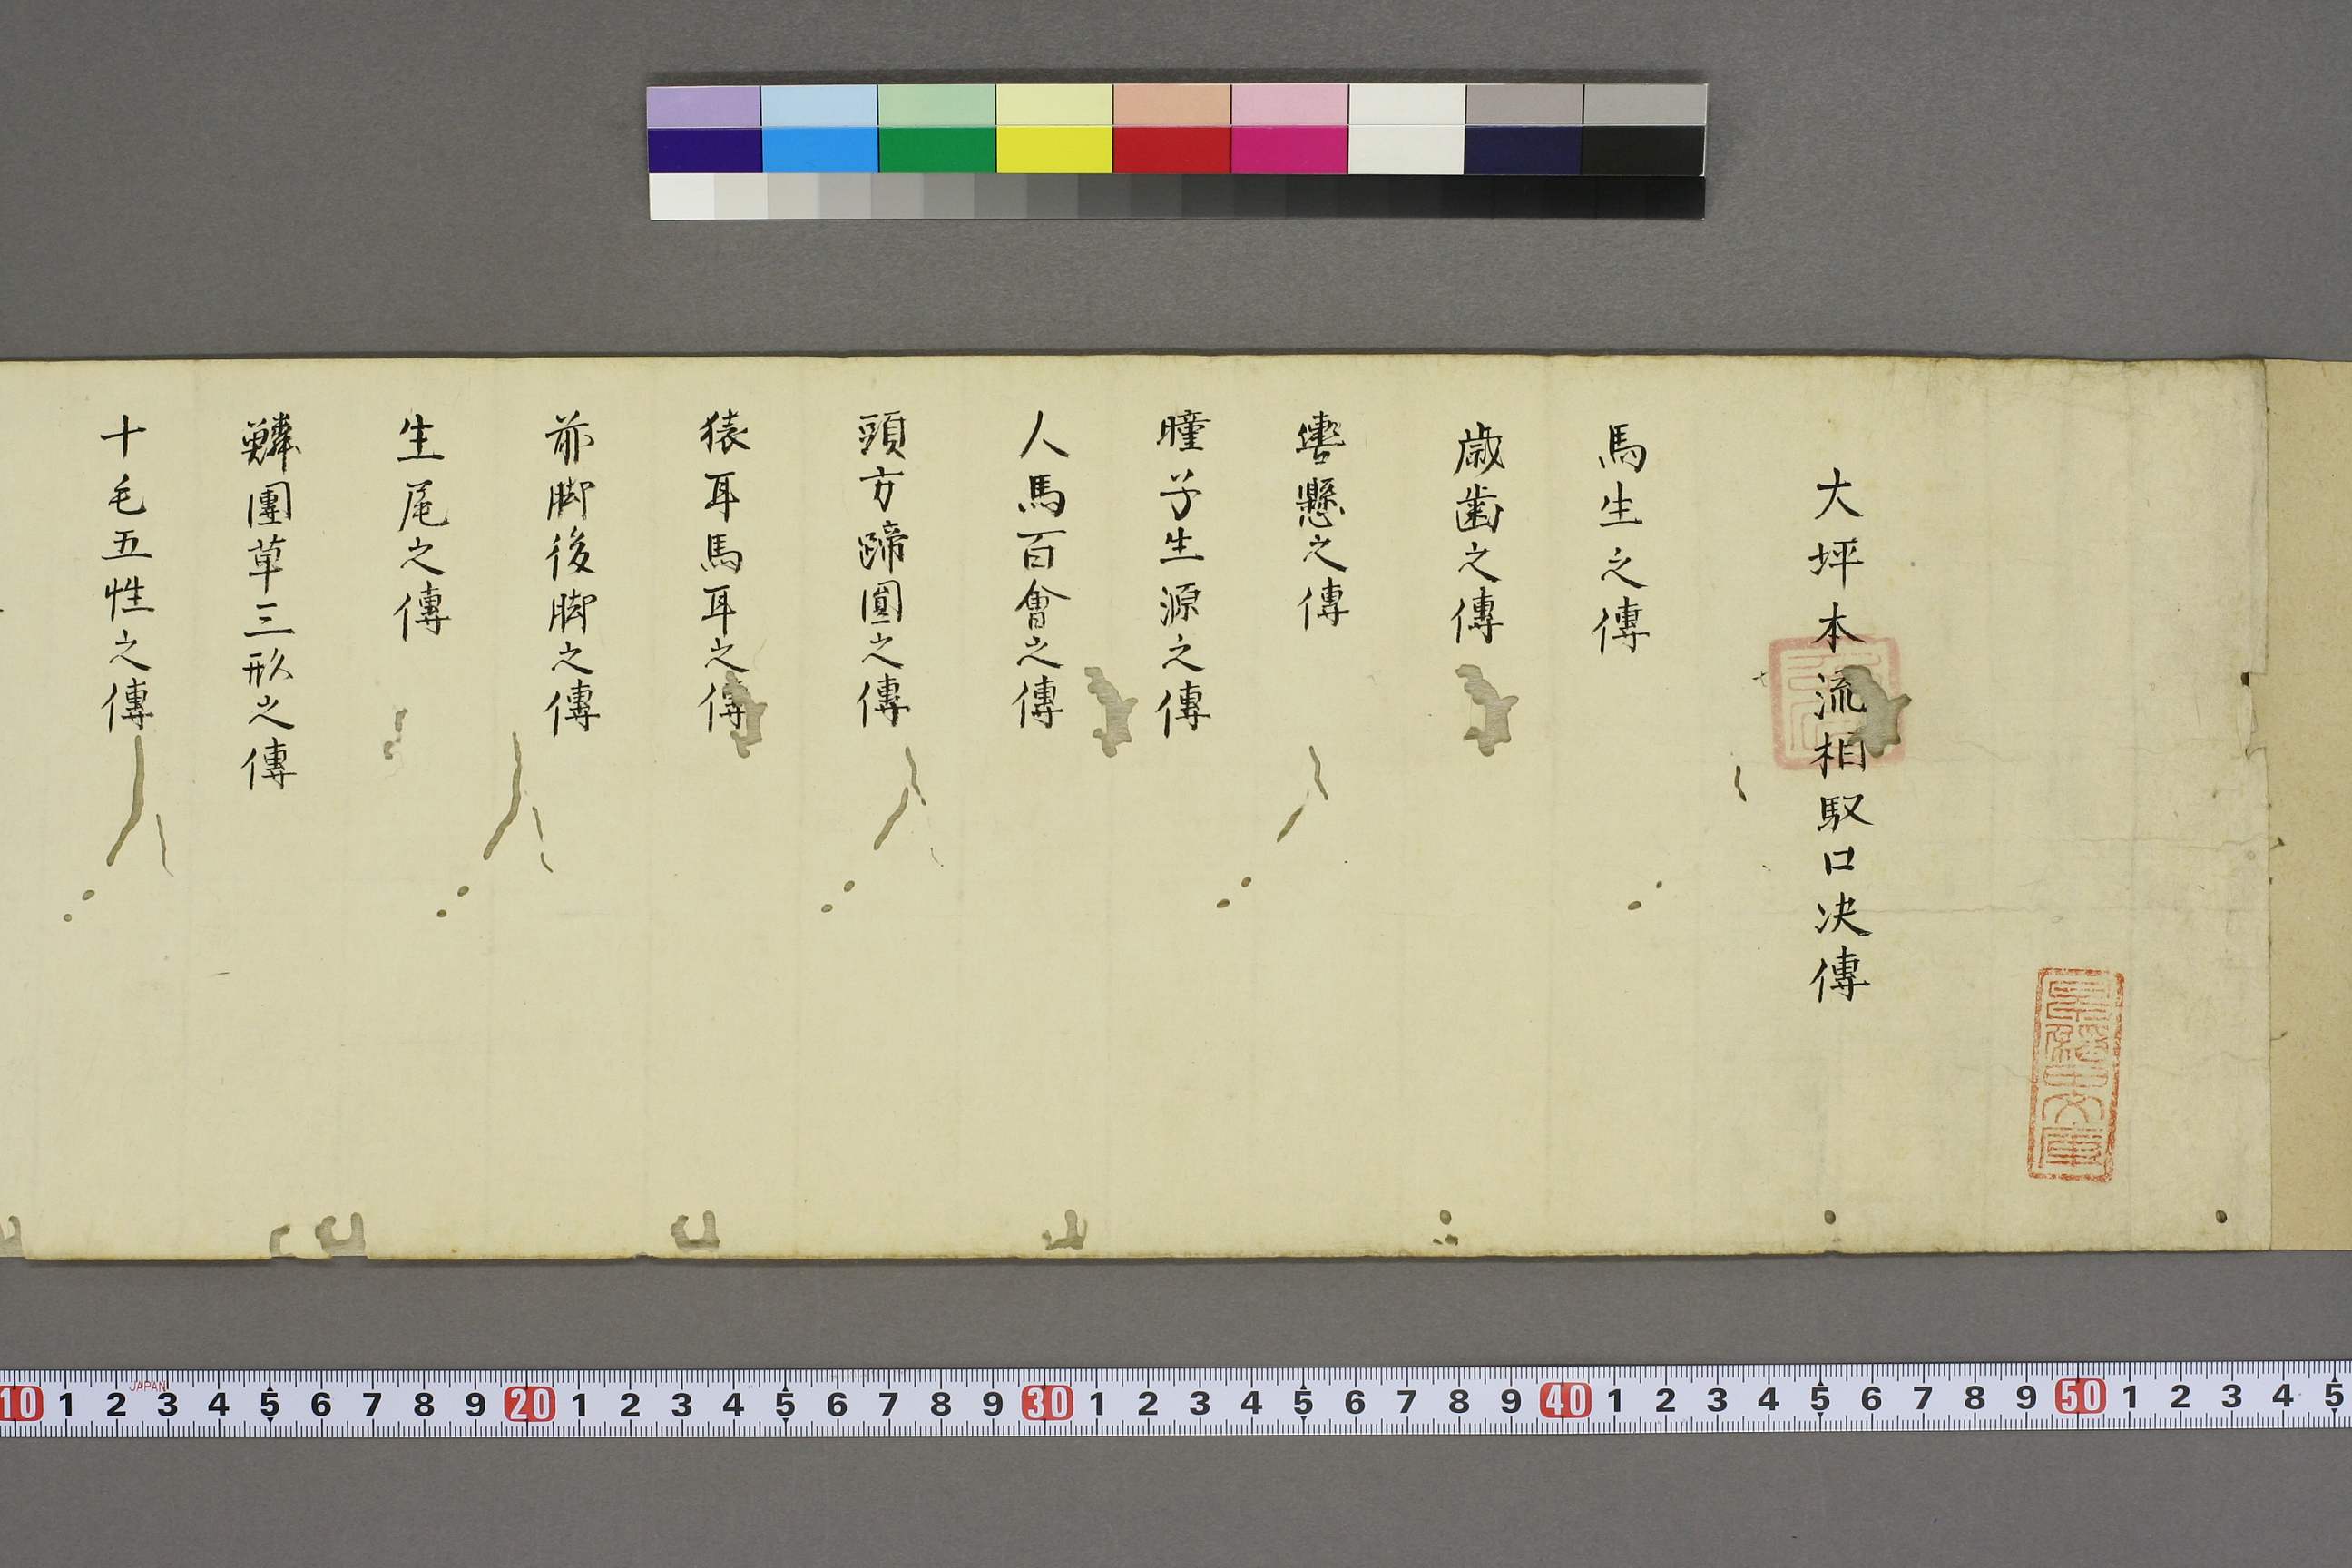 大坪本流相馭口决傳
馬生之傳
歳歯之傳
轡懸之傳
瞳子生源之傳
人馬百會之傳
頭方蹄圓之傳
猿耳馬耳之傳
前脚後脚之傳
生尾之傳
鱗團草三形之傳
十毛五性之傳
文庫
JAPAN
10 1 2 3 4 5 6 7 8 9 20 1 2 3 4 5 6 7 8 9 30 1 2 3 4 5 6 7 8 9 40 1 2 3 4 5 6 7 8 9 50 1 2 3 4 5